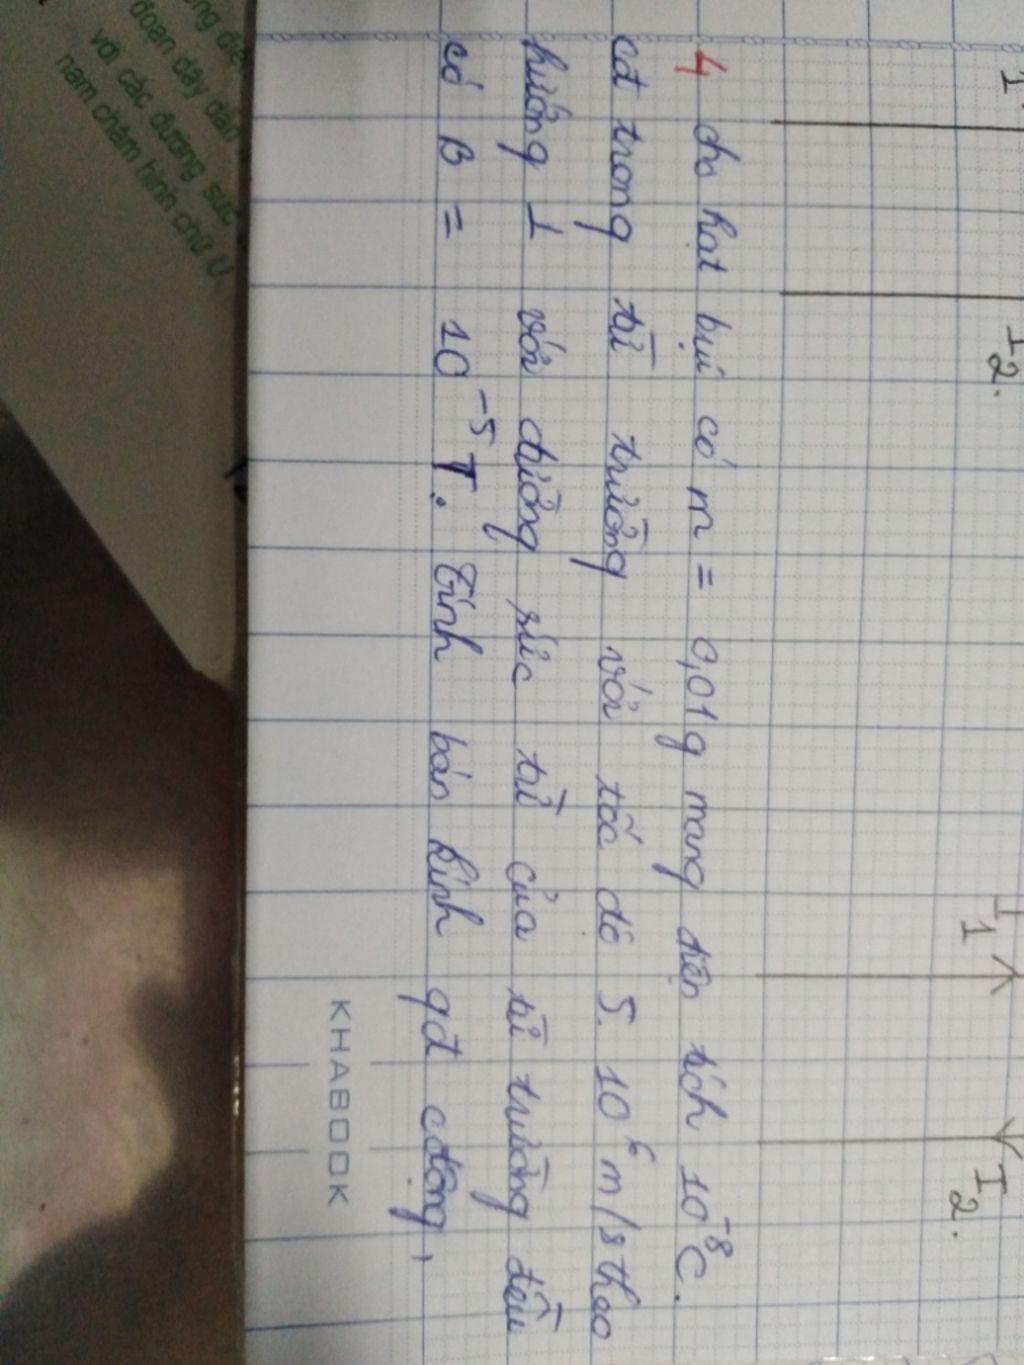 I1
I2.
I1
I2.
4 cho hạt bụi có m = 0,01g mang điện tích 10⁻⁸C.
cđ trong từ trường với tốc độ 5. 10⁶ m/s theo
hướng ⊥ với đường sức từ của từ trường đều
có B = 10⁻⁵T. Tính bán kính qđ cđộng,
KHABOOK
đoạn dây dẫn
với các đường sức
nam châm hình chữ U